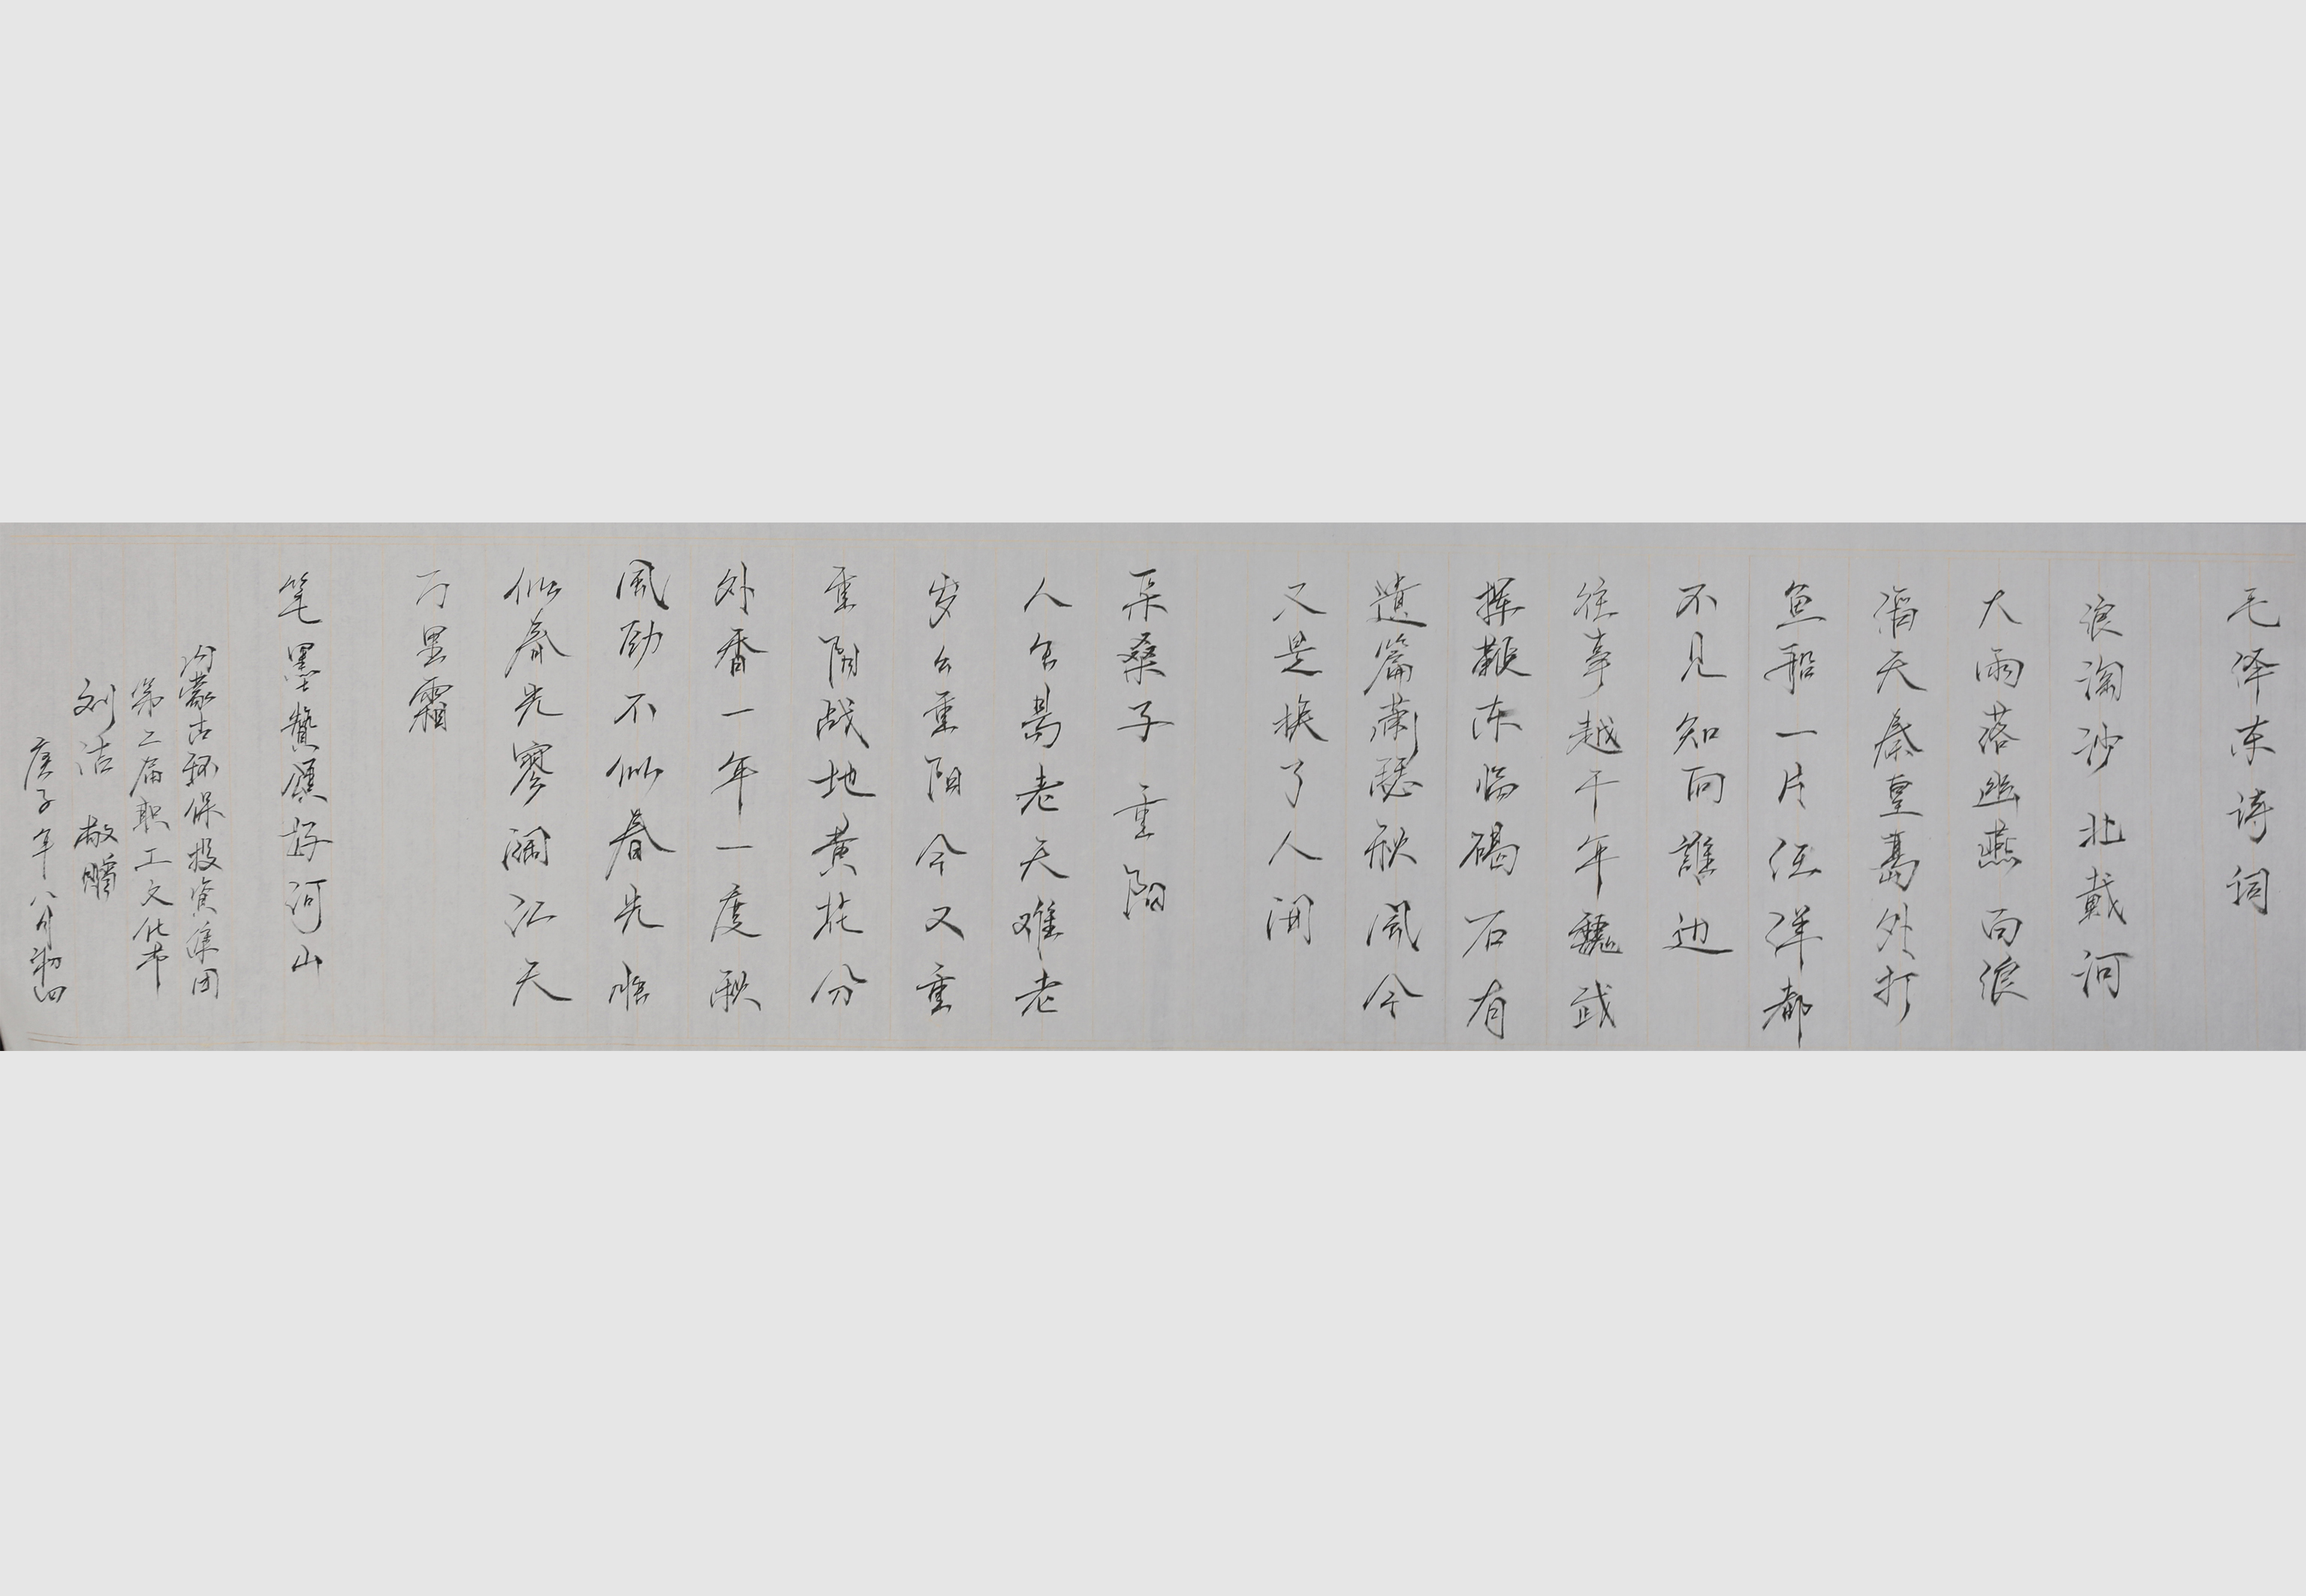 毛泽东诗词
浪淘沙 北戴河
大雨落幽燕 白浪
滔天秦皇島外打
鱼船一片汪洋都
不见知向誰边
往事越千年魏武
挥鞭东临碣石有
遗篇萧瑟秋風今
又是换了人间
采桑子 重阳
人生易老天难老
岁岁重阳今又重
重阳战地黄花分
外香一年一度秋
風劲不似春光勝
似春光寥阔江天
万里霜
笔墨贊颂好河山
内蒙古环保投资集团
第二届职工文化节
刘洁 敬赠
庚子年八月初四